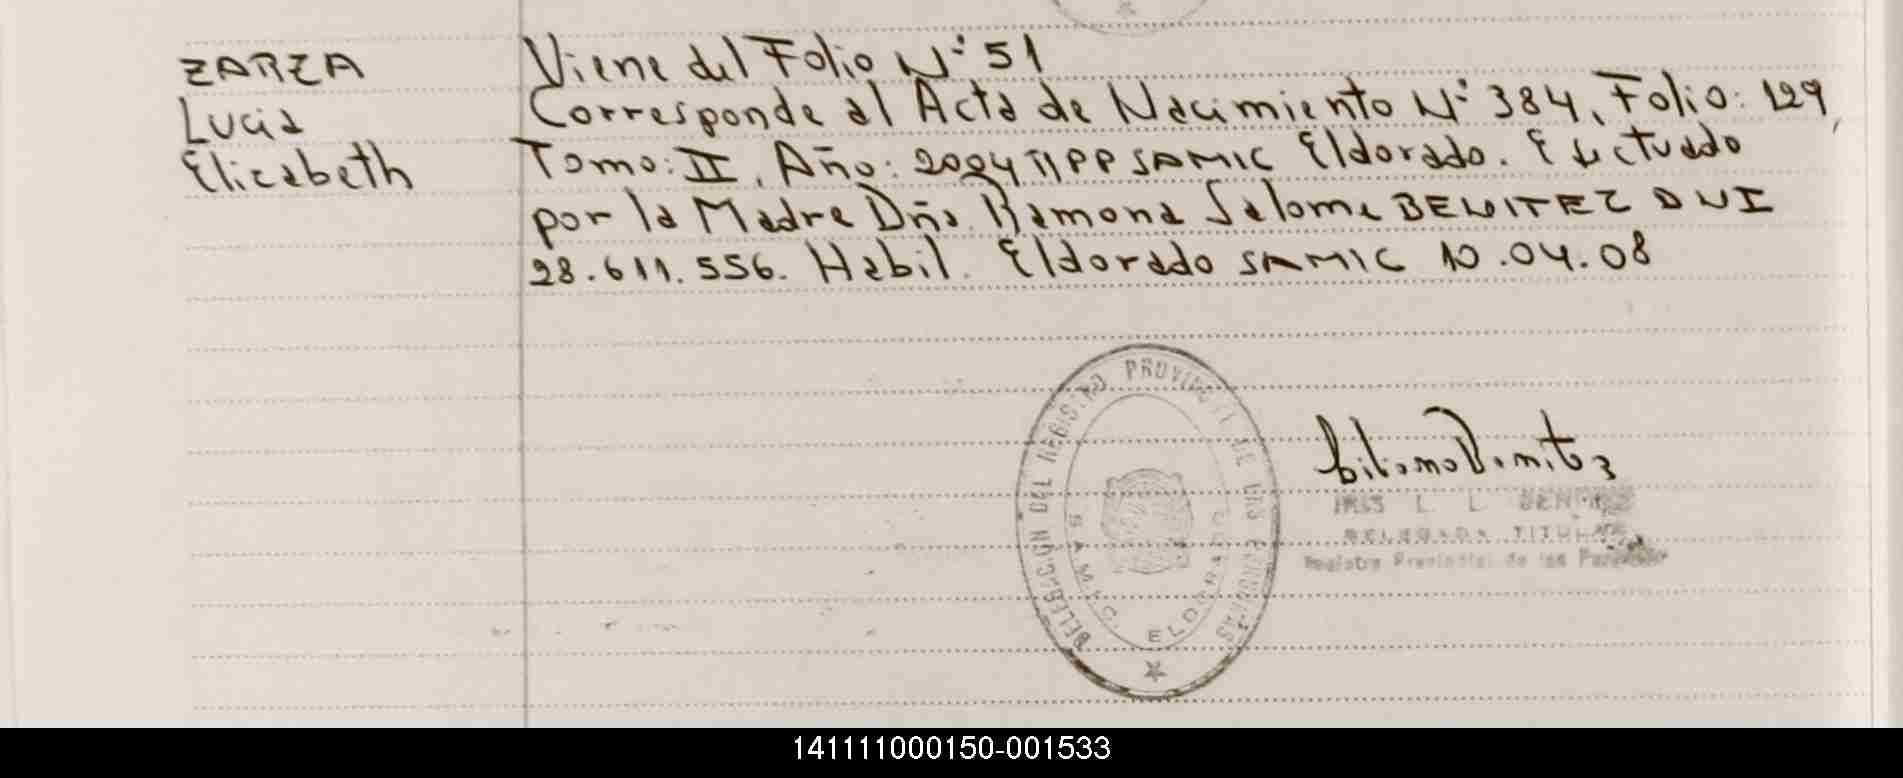 ZARZA
Lucia
Elizabeth
Viene del Folio N° 51
Corresponde al Acta de Nacimiento N° 384, Folio: 129,
Tomo: II. Año: 2004 RPP SAMIC Eldorado. Efectuado
por la Madre Dña. Ramona Salome BENITEZ DNI
28.611.556. Habil. Eldorado SAMIC 10.04.08
DELEGACION DEL REGISTRO PROVINCIAL DE LAS PERSONAS
S.A.M.I.C. ELDORADO
IRIS L. L. BENITEZ
DELEGADA TITULAR
Registro Provincial de las Personas
141111000150-001533